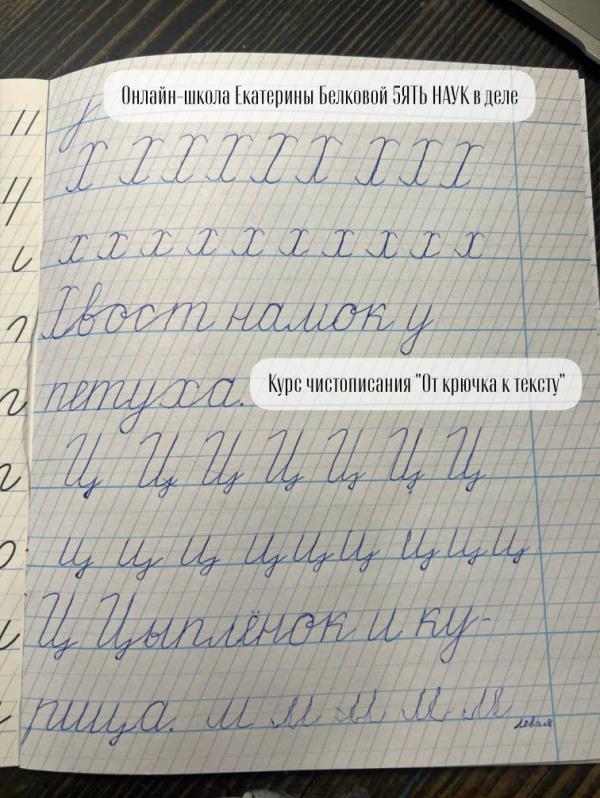 Онлайн-школа Екатерины Белковой 5ЯТЬ НАУК в деле
у
Х Х Х Х Х Х Х Х Х
х х х х х х х х х х
Хвост намок у
петуха.
Курс чистописания "От крючка к тексту"
Ц Ц Ц Ц Ц Ц Ц
ц ц ц ц ц ц ц ц ц
Ц Цыплёнок и ку-
рица. и и и и и
левая